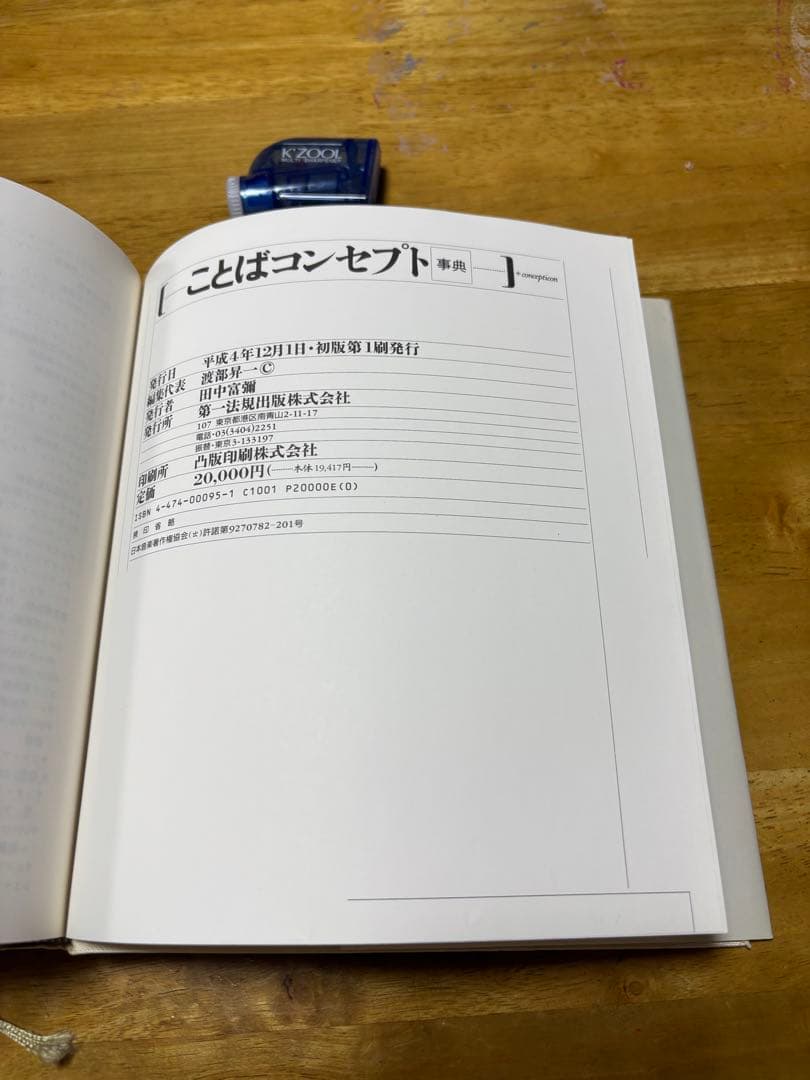 K'ZOOL
MULTI SHARPENER
[ことばコンセプト 事典 ]+concepticon
発行日 平成4年12月1日・初版第1刷発行
編集代表 渡部昇一Ⓒ
発行者 田中富彌
発行所 第一法規出版株式会社
107 東京都港区南青山2-11-17
電話・03(3404)2251
振替・東京3-133197
印刷所 凸版印刷株式会社
定価 20,000円(——本体 19,417円——)
ISBN 4-474-00095-1 C1001 P20000E(0)
検印省略
日本音楽著作権協会(出)許諾第9270782-201号